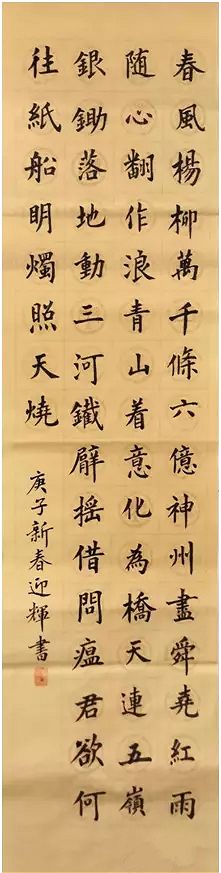 春風楊柳萬千條六億神州盡舜堯紅雨
随心翻作浪青山着意化為橋天連五嶺
銀鋤落地動三河鐵臂摇借問瘟君欲何
往紙船明燭照天燒
庚子新春迎輝書